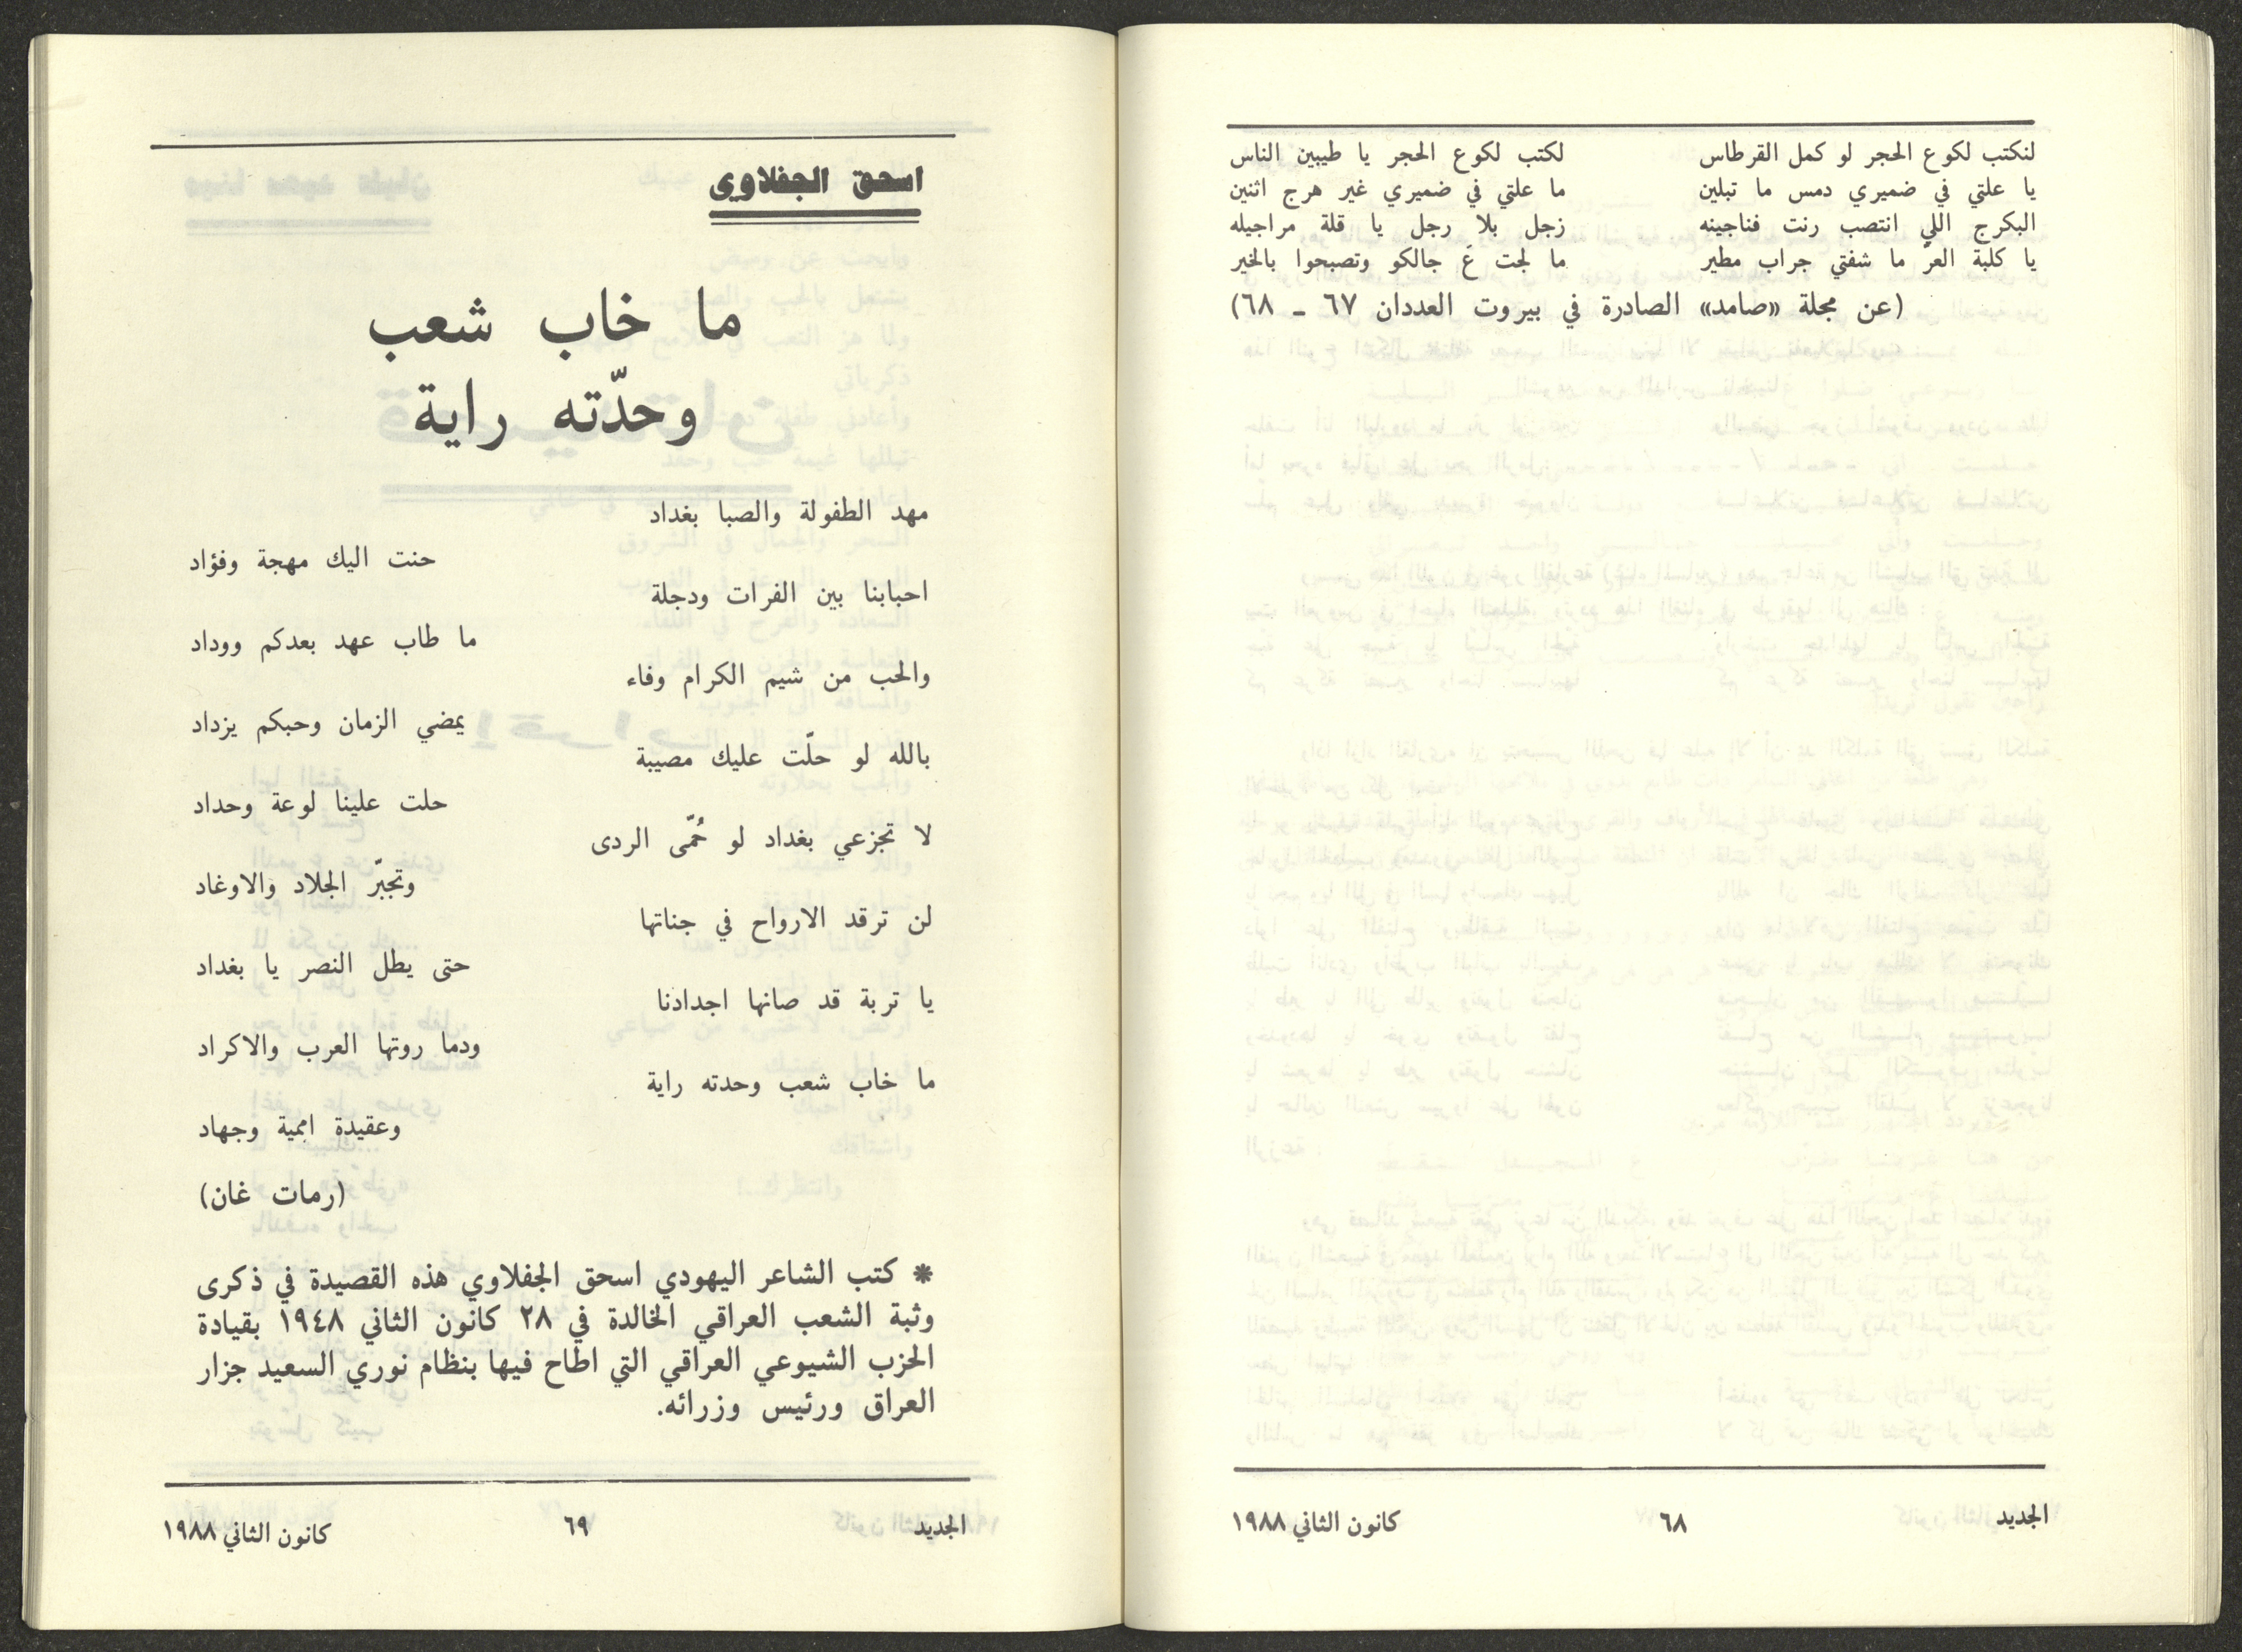 لنكتب لكوع الحجر لو كمل القرطاس لكتب لكوع الحجر يا طيبين الناس
يا علتي في ضميري دمس ما تبلين ما علتي في ضميري غير هرج اثنين
البكرج اللي انتصب رنت فناجينه زجل بلا رجل يا قلة مراجيله
يا كلبة العرّ ما شفتي جراب مطير ما لجت عَ جالكو وتصبحوا بالخير
(عن مجلة «صامد» الصادرة في بيروت العددان ٦٧ ـ ٦٨)
الجديد ٦٨ كانون الثاني ١٩٨٨
اسحق الجفلاوي
ما خاب شعب
وحدّته راية
مهد الطفولة والصبا بغداد
حنت اليك مهجة وفؤاد
احبابنا بين الفرات ودجلة
ما طاب عهد بعدكم ووداد
والحب من شيم الكرام وفاء
يمضي الزمان وحبكم يزداد
بالله لو حلّت عليك مصيبة
حلت علينا لوعة وحداد
لا تجزعي بغداد لو حُمّى الردى
وتجبّر الجلاد والاوغاد
لن ترقد الارواح في جناتها
حتى يطل النصر يا بغداد
يا تربة قد صانها اجدادنا
ودما روتها العرب والاكراد
ما خاب شعب وحدته راية
وعقيدة اممية وجهاد
(رمات غان)
* كتب الشاعر اليهودي اسحق الجفلاوي هذه القصيدة في ذكرى
وثبة الشعب العراقي الخالدة في ٢٨ كانون الثاني ١٩٤٨ بقيادة
الحزب الشيوعي العراقي التي اطاح فيها بنظام نوري السعيد جزار
العراق ورئيس وزرائه.
الجديد ٦٩ كانون الثاني ١٩٨٨